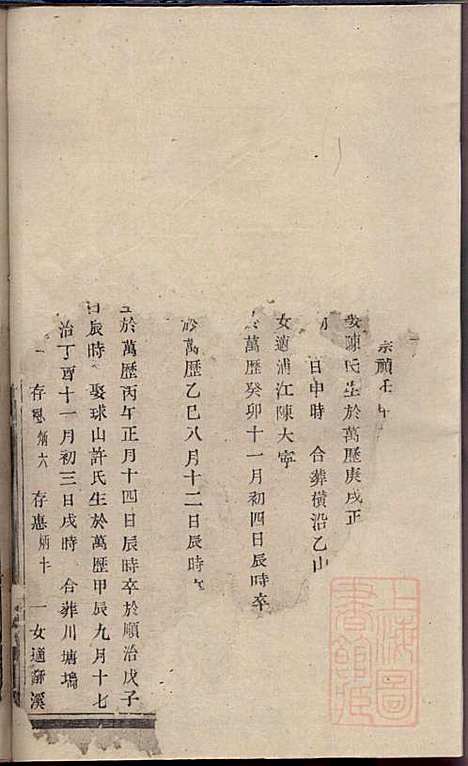 崇禎壬午
娶陳氏生於萬歷庚戌正
日申時 合葬橫沿乙山
女適浦江陳大寧
萬歷癸卯十一月初四日辰時卒
於萬歷乙巳八月十二日辰時
生於萬歷丙午正月十四日辰時卒於順治戊子
日辰時 娶球山許氏生於萬歷甲辰九月十七
治丁酉十一月初三日戌時 合葬川塘塢
存 炳六 存惠炳十 一女適 溪
上海圖書館藏